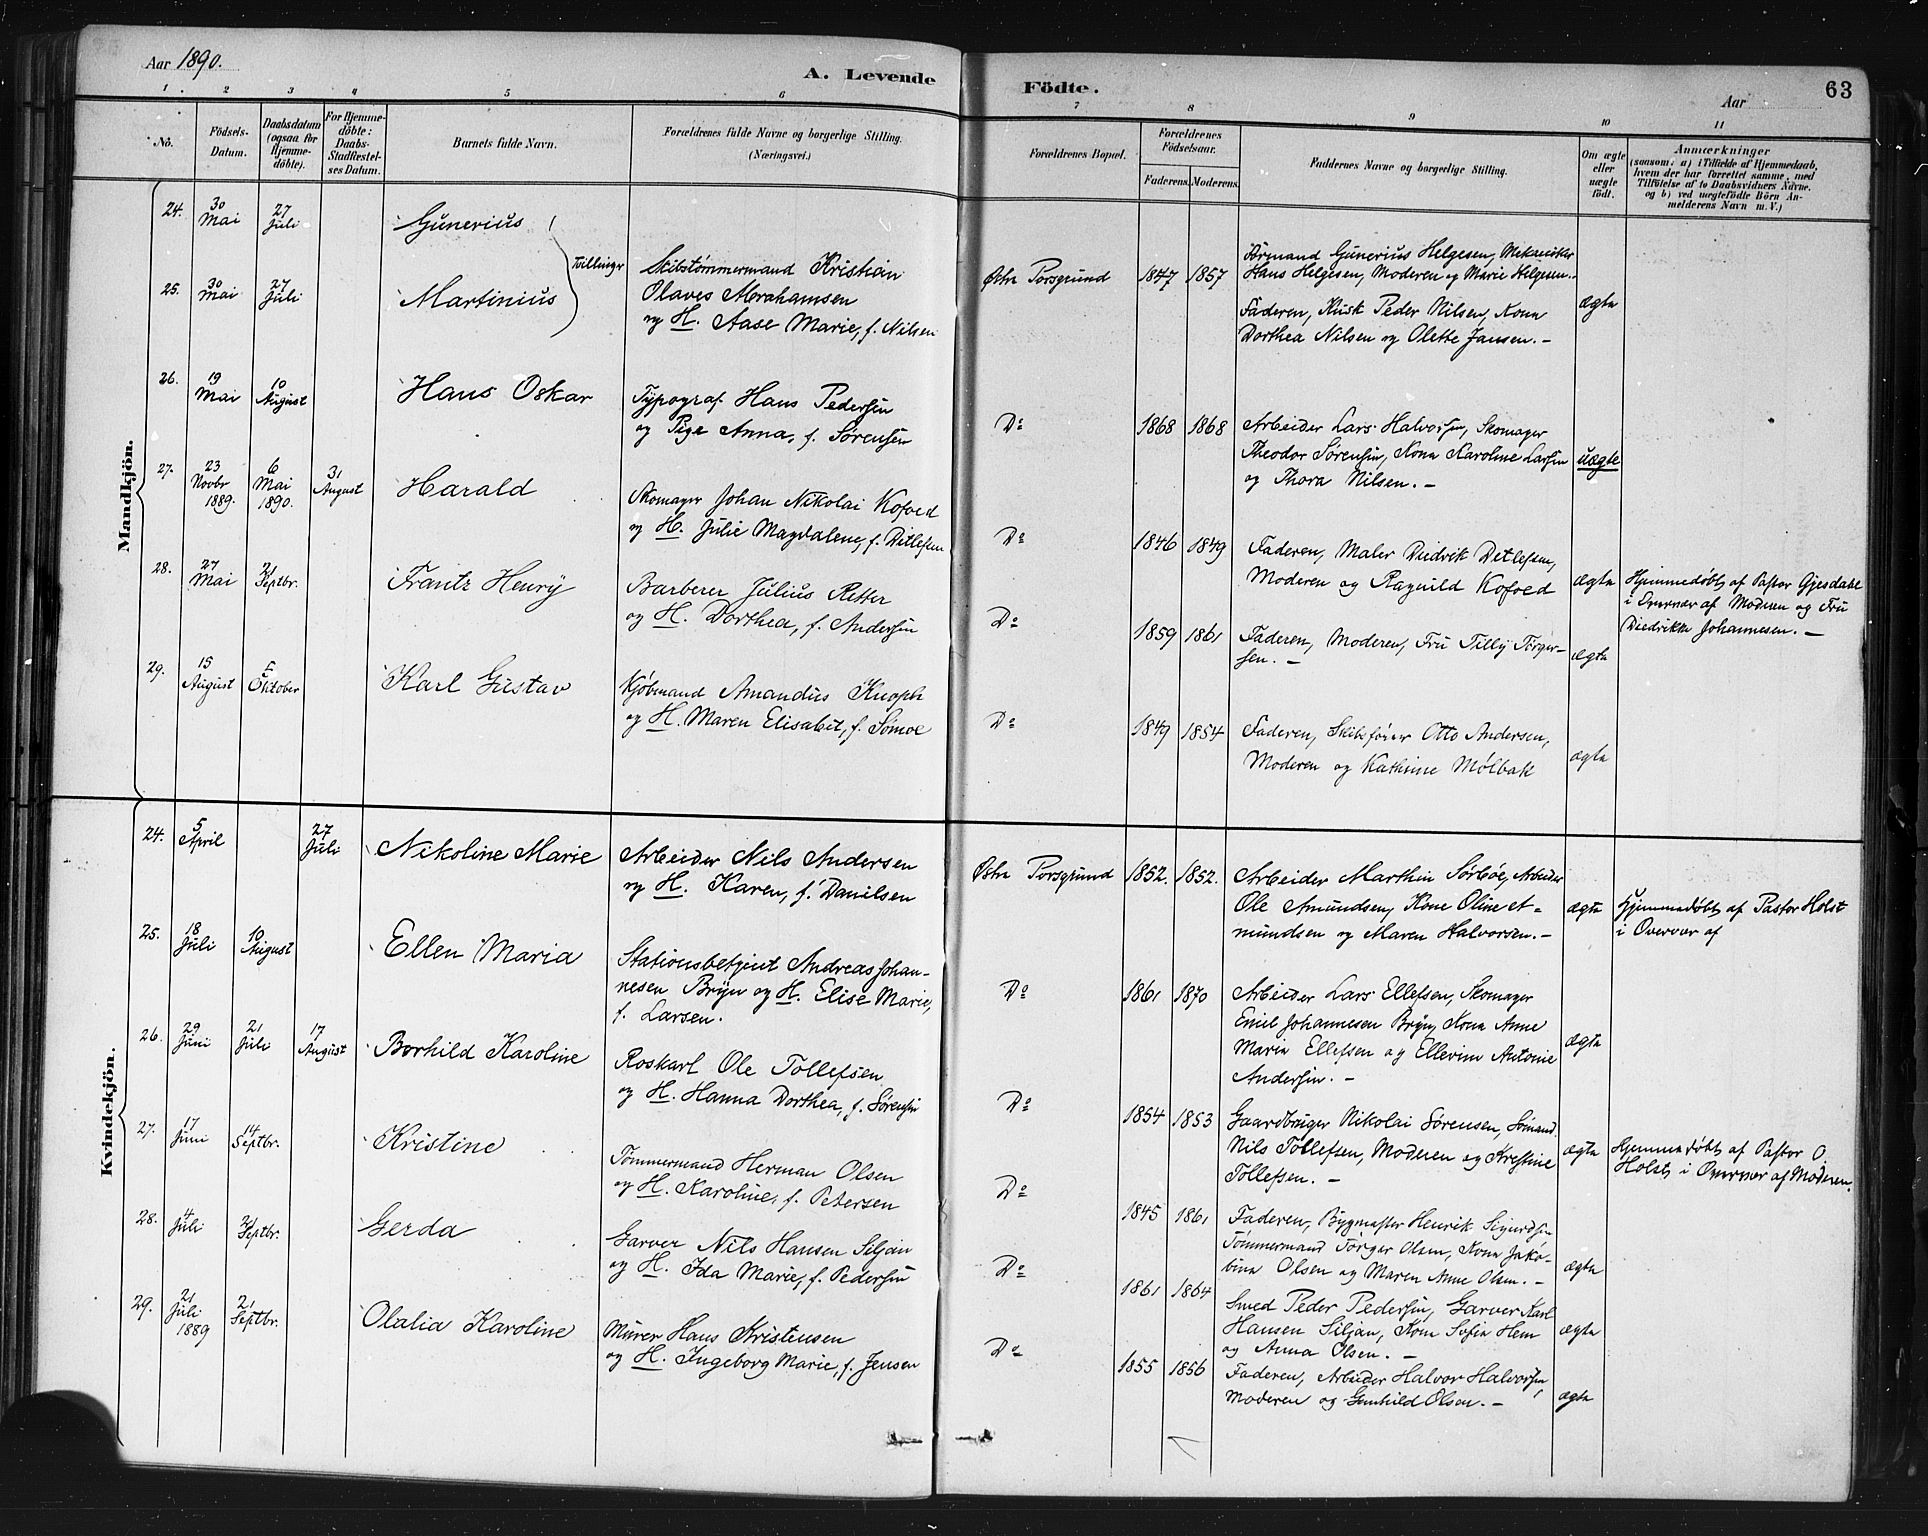 Aar 1890.
A. Levende
Födte.
Aar
63
1
2
3
4
5
6
7
8
9
10
11
No.
Födsels-
Datum.
Daabsdatum
(ogsaa for
Hjemme-
döbte).
For Hjemme-
döbte:
Daabs-
Stadfæstel-
ses Datum.
Barnets fulde Navn.
Forældrenes fulde Navne og borgerlige Stilling.
(Næringsvei.)
Forældrenes Bopæl.
Forældrenes
Födselsaar.
Faderens.
Moderens.
Faddernes Navne og borgerlige Stilling.
Om ægte
eller
uægte
födt.
Anmærkninger
(saasom: a) i Tilfælde af Hjemmedaab,
hvem der har forrettet samme, med
Tilföielse af to Daabsvidners Navne.
og b) ved uægtefödte Börn An-
melderens Navn m. V.)
Mandkjön.
24.
30
Mai
27
Juli
Gunerius
Tvillinger
25.
30
Mai
27
Juli
Martinius
Skibstømmermand Kristian
Olaves Abrahamsen
og H. Aase Marie, f. Nilsen
Østre Porsgrund
1847
1857
Formand Gunerius Helgesen,
Hans Helgesen, Moderen og Marie Helgesen.
Faderen, Kusk Peder Nilsen, Kona
Dorthea Nilsen og Olette Jansen. –
ægte
26.
19
Mai
10
August
Hans Oskar
Typograf Hans Pedersen
og Pige Anna, f. Sørensen
Do
1868
1868
Arbeider Lars Halvorsen, Skomager
Theodor Sørensen, Kona Karoline Larsen
og Thora Nilsen. –
uægte
27.
23
Novbr
1889.
6
Mai
1890.
31
August
Harald
Skomager Johan Nikolai Kofoed
og H. Julie Magdalene, f. Ditlefsen
Do
1846
1849
Faderen, Maler Diedrik Detlefsen,
Moderen og Ragnild Kofoed
ægte
Hjemmedøbt af Pastor Gjesdahl
i Overvær af Moderen og Fru
Diedrikke Johannesen. –
28.
27
Mai
21
Septbr.
Frantz Henry
Barberer Julius Retter
og H. Dorthea, f. Andersen
Do
1859
1861
Faderen, Moderen, Fru Tilly Törger-
sen. –
ægte
29.
15
August
5
Oktober
Karl Gustav
Kjøbmand Amandus Knoph
og H. Maren Elisabet, f. Sømoe
Do
1849
1854
Faderen, Skibsfører Otto Andersen,
Moderen og Kathrine Mølbak
ægte
Kvindekjön.
24.
5
April
27
Juli
Nikoline Marie
Arbeider Nils Andersen
og H. Karen, f. Danielsen
Østre Porsgrund
1852.
1852.
Arbeider Marthin Sørbøe, Arbeider
Ole Amundsen, Kone Oline A-
mundsen og Maren Halvorsen. –
ægte
Hjemmedøbt af Pastor Holst
i Overvær af
25.
18
Juli
10
August
Ellen Maria
Stationsbetjent Andreas Johan-
nesen Bryn og H. Elise Marie,
f. Larsen.
Do
1861
1870
Arbeider Lars Ellefsen, Skomager
Emil Johannesen Bryn, Kona Anne
Maria Ellefsen og Ellevine Antonie
Andersen. –
ægte
26.
29
Juni
21
Juli
17
August
Borhild Karoline
Roskarl Ole Tollefsen
og H. Hanna Dorthea, f. Sørensen
Do
1854
1853
Gaardbruger Nikolai Sørensen, Sömand
Nils Tollefsen, Moderen og Krestine
Tollefsen. –
ægte
Hjemmedøbt af Pastor O.
Holst, i Overvær af Moderen.
27.
17
Juni
14
Septbr.
Kristine
Tømmermand Herman Olsen
og H. Karoline, f. Petersen
Do
1845
1861
Faderen, Bygmester Henrik Sigurdsen
Tömmermand Törger Olsen, Kona Jako-
bine Olsen og Maren Anne Olsen. –
ægte
28.
4
Juli
21
Septbr.
Gerda
Garver Nils Hansen Siljan
og H. Ida Marie, f. Pedersen
Do
1861
1864
Smed Peder Pedersen, Garver Karl
Hansen Siljan, Kona Sofia Hem
og Anna Olsen. –
ægte
29.
21
Juli
1889
21
Septbr.
Olalia Karoline
Murer Hans Kristensen
og H. Ingeborg Marie, f. Jensen
Do
1855
1856
Faderen, Arbeider Halvor Halvorsen,
Moderen og Gunhild Olsen. –
ægte